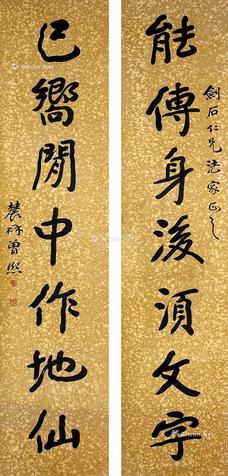 劍石仁兄法家正之
能傳身後須文字
已嚮閒中作地仙
農髯曾熙